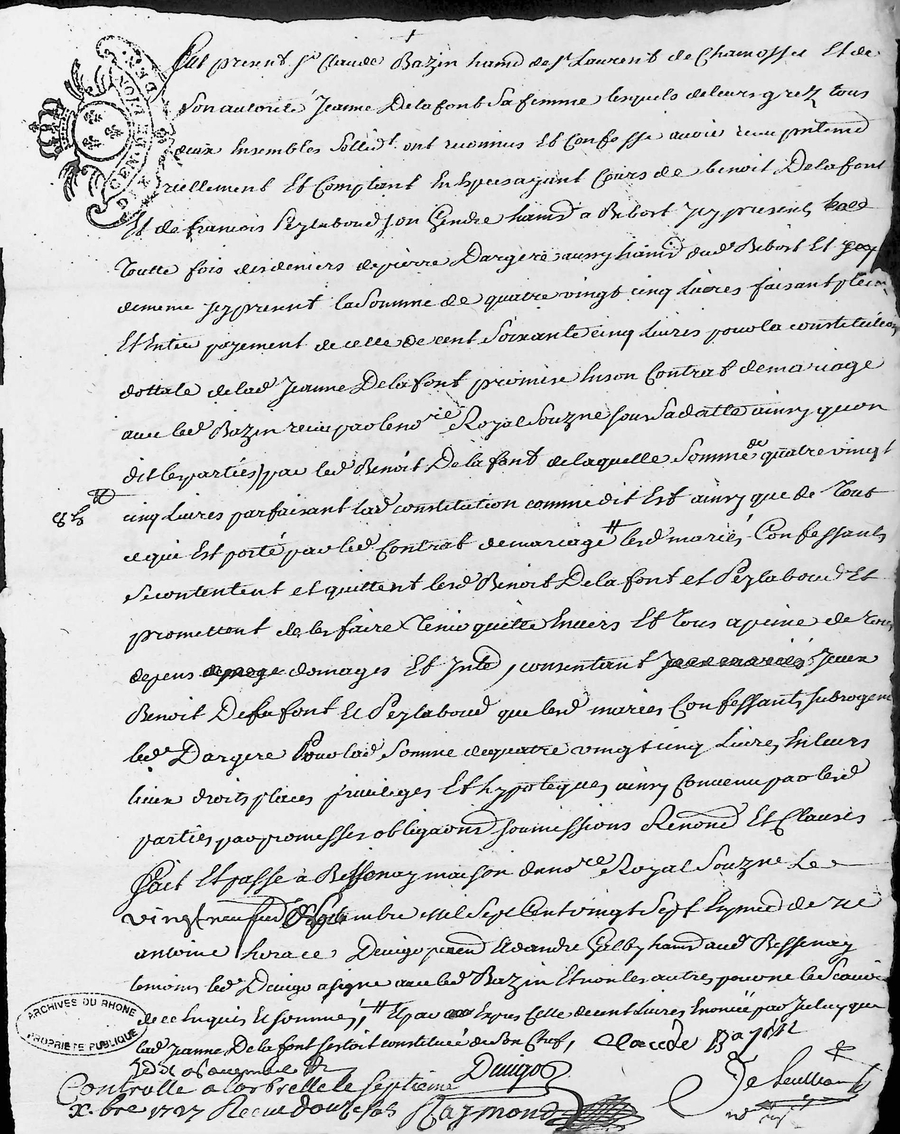 GEN. DE LYON
DIX DEN.
Fut present Sr Claude Bazin habnt de St Laurent de Chamosset Et de
Son autorité Jeanne Delafont Sa femme lesquels de leurs grez tous
deux Ensembles Sollidt. ont reconnus Et Confesse avoir receu presentemt
reellement Et Comptant En Especes ayant Cours de benoit Delafont
Et de francois Peylaboud son Gendre habnt a Bibost Icy presents
Toutte fois des deniers de pierre Dargere aussy habnt dud Bibost Et
dememe Icy present la Somme de quatre vingt cinq Livres faisant plein
Et Entier payement de celle de cent Soixante cinq Livres pour la constitution
dottale de lad Jeanne Delafont promise En son Contrat de mariage
avec led Bazin receu par le nore Royal Souzne sous Sa datte ainsy quon
dit les parties par led Benoit Delafont de laquelle Somme de quatre vingt
85 tt cinq Livres parfaisant lad constitution comme dit Est ainsy que de Tout
ce qui Est porté par led Contrat de mariage tt lesd mariés Confessants
se contentent et quittent lesd Benoit Delafont et Peylaboud Et
promettent de les faire Tenir quitte Envers Et Tous a peine de tous
depens domages Et Intd, consentant Iceux
Benoit Delafont Et Peylaboud que lesd mariés Confessants subrogent
led Dargere Pour lad Somme de quatre vingt cinq Livres En leurs
lieux droits places privileges Et hypoteques ainsy Convenu par lesd
parties par promesses obligaons soumissions Renond Et Clauses
Fait Et passé a Bessenay maison de nore Royal Souzne Le
vingt neuf Septembre mil Sept Cent vingt Sept En presd de
antoine horace Duvigo Et andre habnt aud Bessenay
temoins led Duvigo a signe avec led Bazin Et non les autres pour ne le scavoir
de ce Enquis Et sommés, tt Et par Celle de cent Livres par Iceluy que
lad Jeanne Delafont Sestoit constituée de Son Chef, claude Bazin
Duvigo
Controlle a larbrelle le Septieme
X.bre 1727 Receu douze sols Raymond
ARCHIVES DU RHONE
PROPRIETE PUBLIQUE